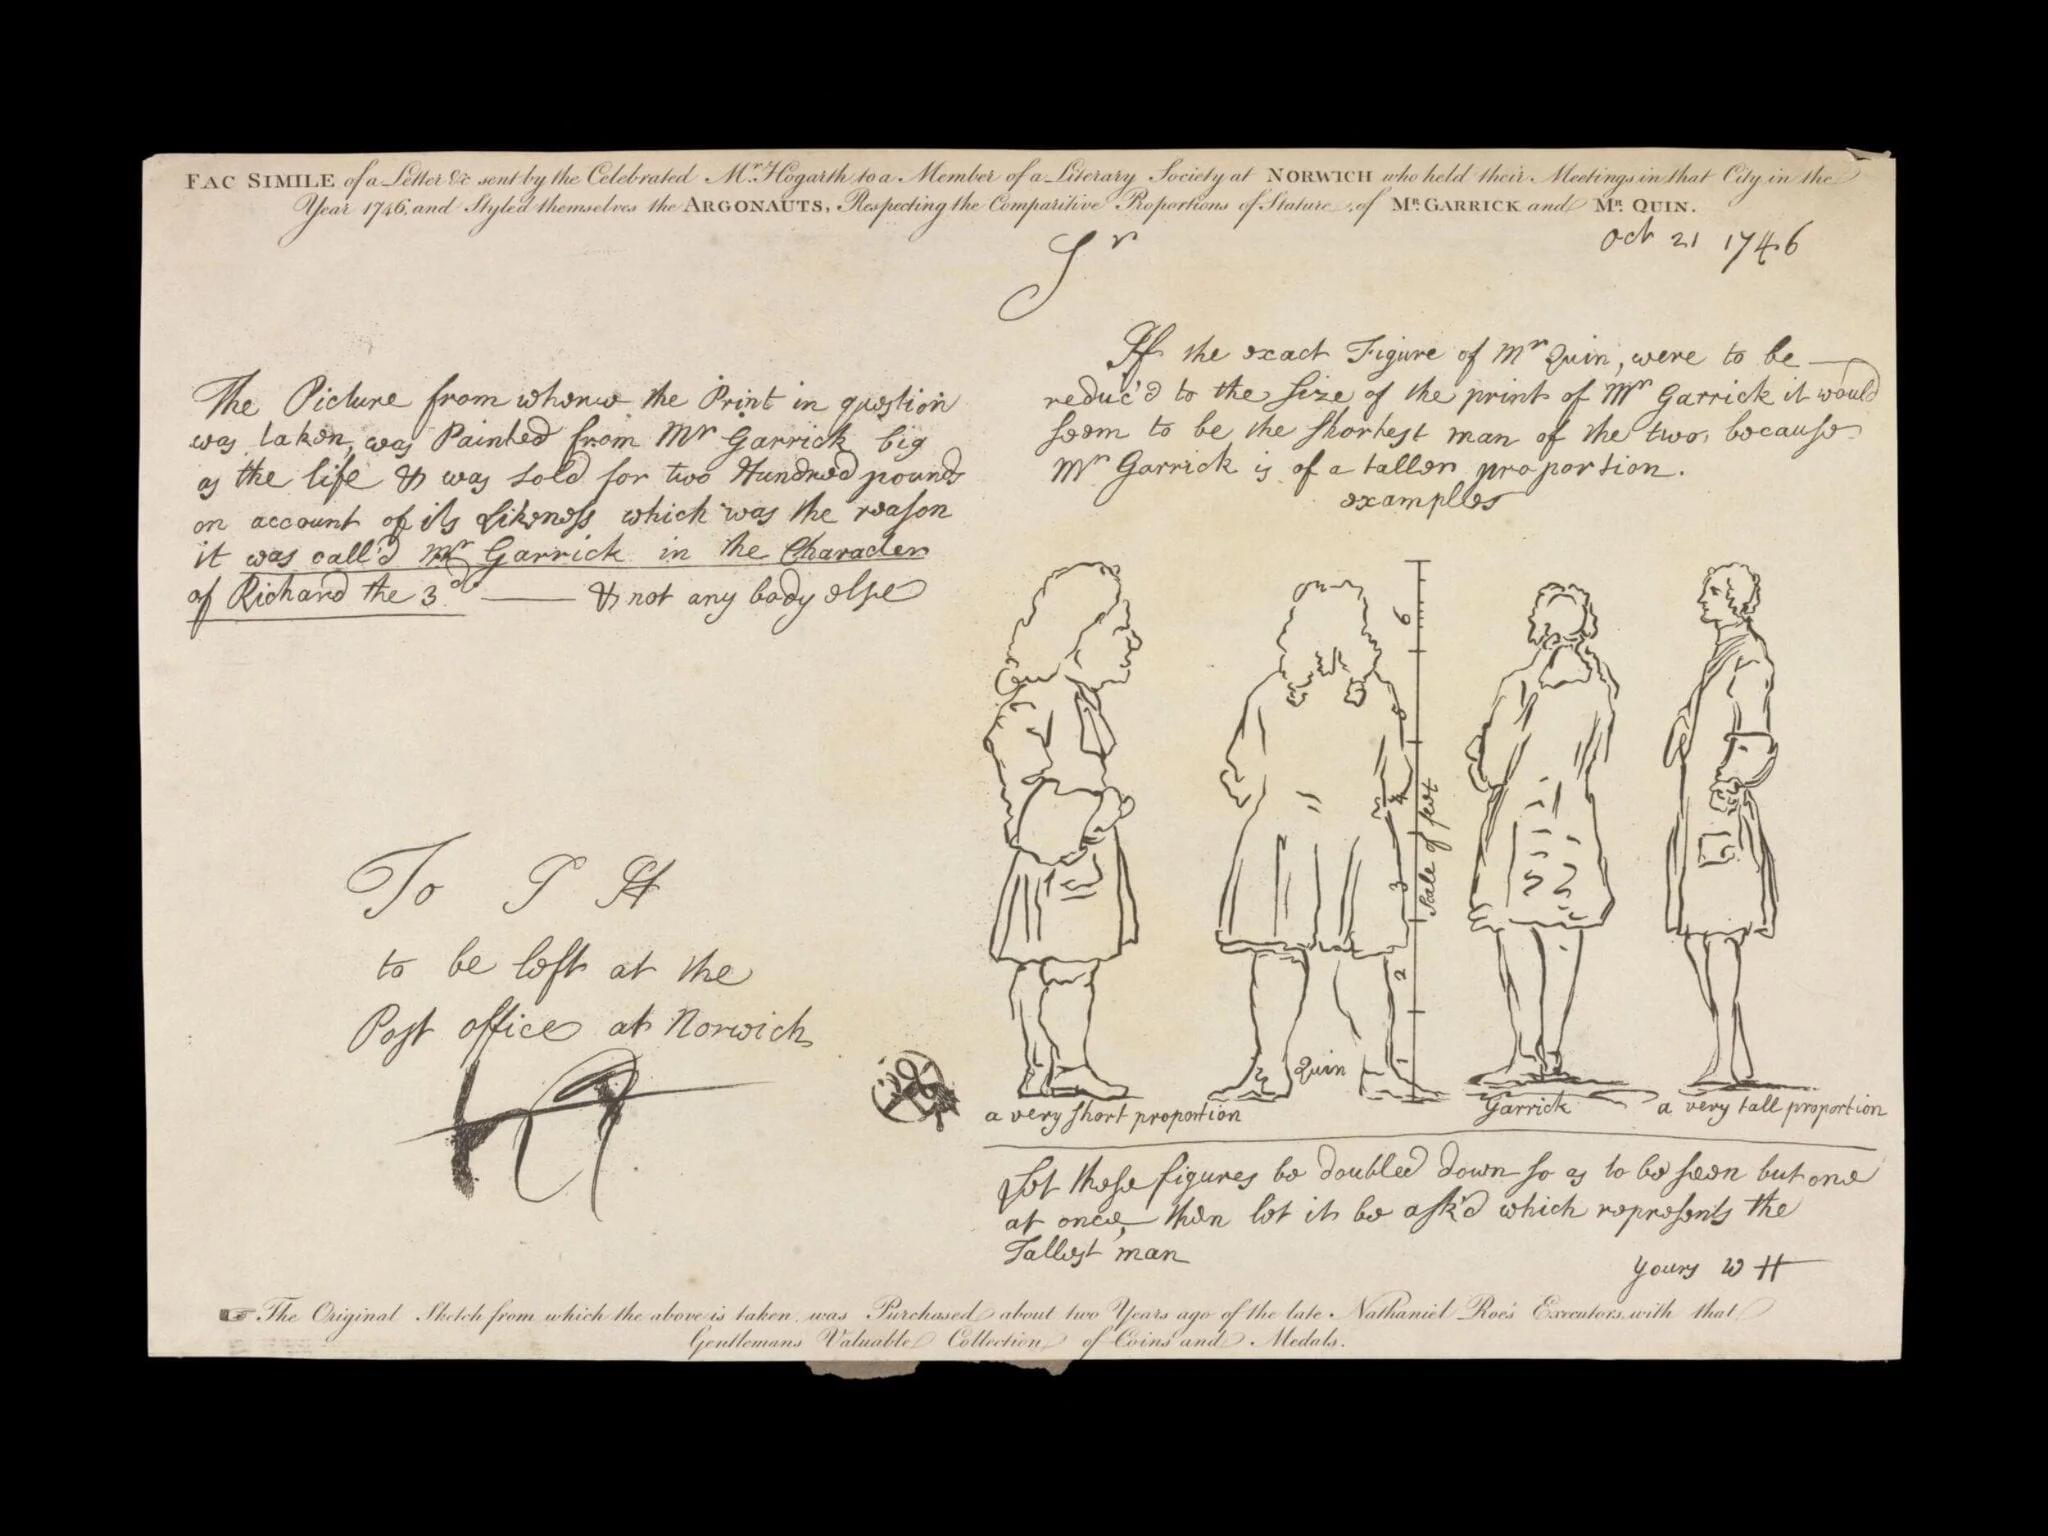 FAC SIMILE of a Letter &c sent by the Celebrated Mr. Hogarth to a Member of a Literary Society at NORWICH who held their Meetings in that City in the
Year 1746, and Styled themselves the ARGONAUTS, Respecting the Comparitive Proportions of Stature, of MR. GARRICK and MR. QUIN.
Oct 21 1746
Sr
If the exact Figure of Mr Quin, were to be
reduc'd to the size of the print of Mr Garrick it would
seem to be the shortest man of the two, because
Mr Garrick is of a taller proportion.
examples
The Picture from whence the Print in question
was taken, was Painted from Mr Garrick big
as the life & was sold for two Hundred pounds
on account of its Likeness which was the reason
it was call'd Mr Garrick in the Character
of Richard the 3d. — & not any body else
To
to be left at the
Post office at Norwich
6
5
4
3
2
1
Scale of feet
Quin
Garrick
a very short proportion
a very tall proportion
Let these figures be doubled down so as to be seen but one
at once, then let it be ask'd which represents the
Tallest man
yours W H
☞ The Original Sketch from which the above is taken, was Purchased about two Years ago of the late Nathaniel Roe's Executors, with that
Gentlemans Valuable Collection, of Coins and Medals.